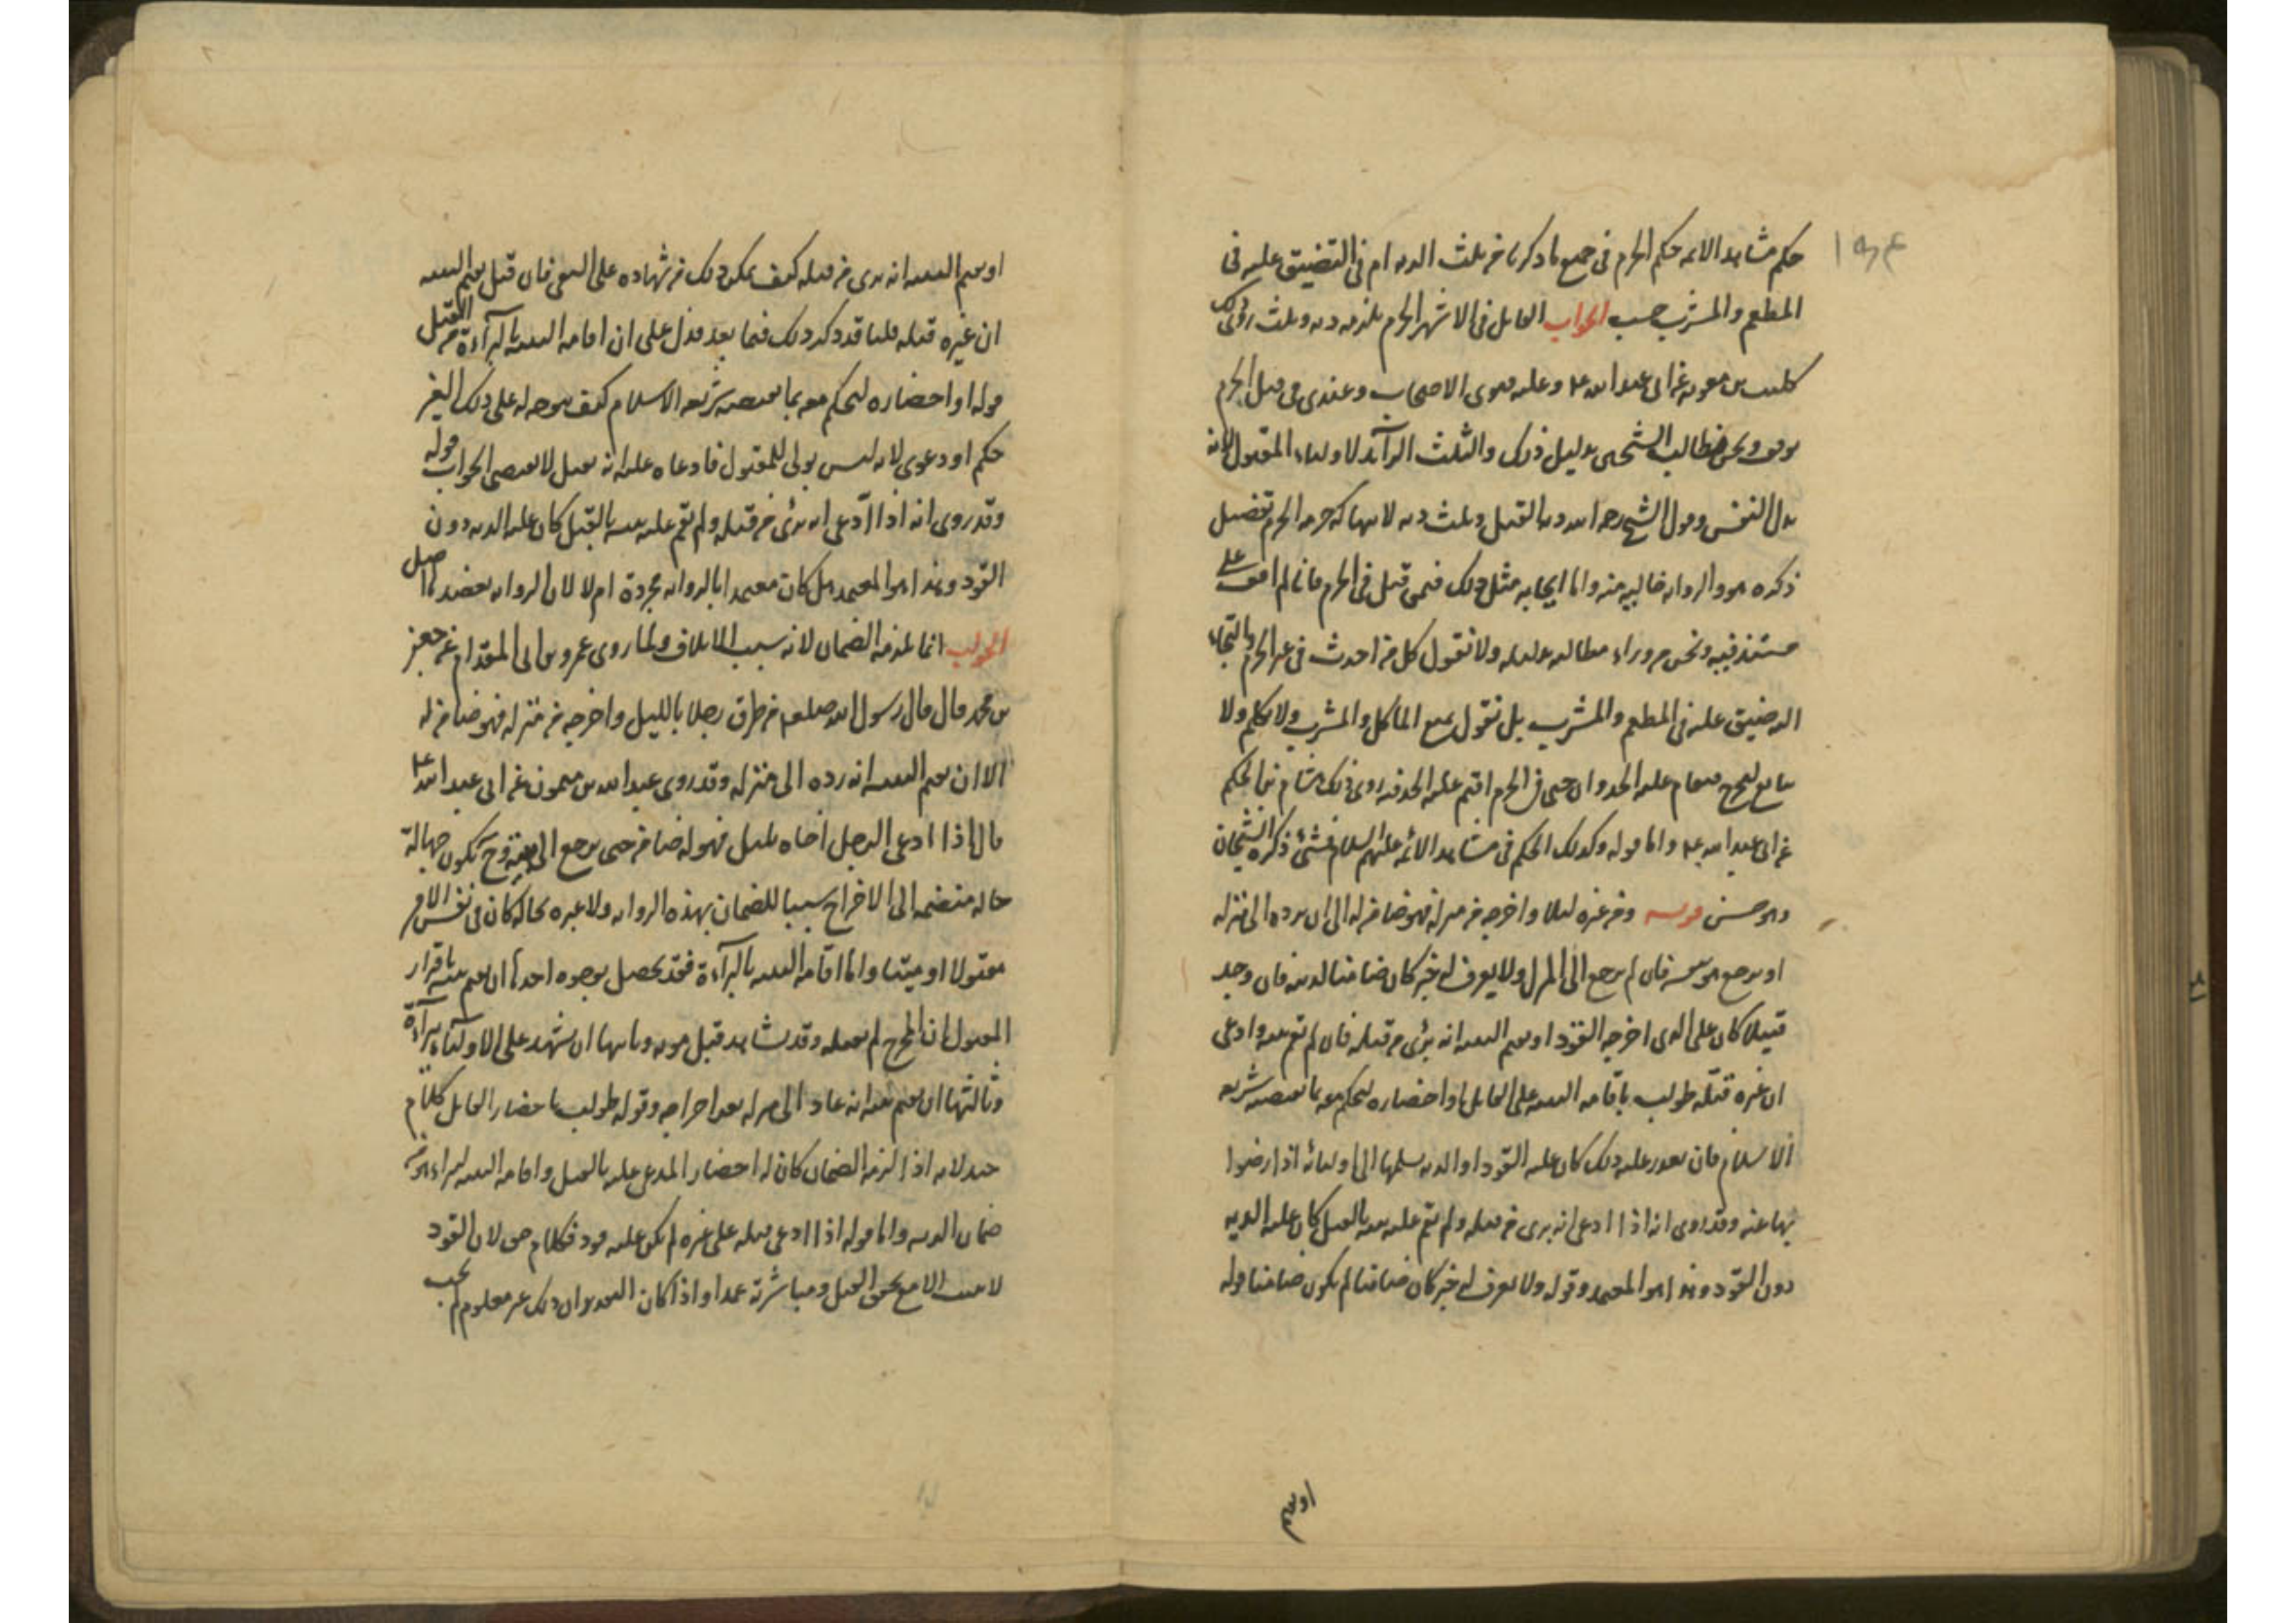 حكم مشاهد الائمه حكم الحرم فى جميع ما ذكرناه من ثلث الديه ام فى التضييق عليه فى
المطعم والمشرب حسب الجواب القاتل فى الاشهر الحرم يلزمه ديه وثلث روى ذلك
كليب بن معويه عن ابى عبد الله ع وعليه فتوى الاصحاب وعندى فى قتل الحرم
توقف ونحن نطالب الشيخين بدليل ذلك والثلث الزائد لاولياء المقتول لانه
بدل النفس وقول الشيخ رحمه الله ديه القتل وثلث ديه لانتهاكه حرمه الحرم تفصيل
ذكره هو والروايه خاليه منه واما ايجابه مثل ذلك فيمن قتل فى الحرم فانا لم اقف على
مستند فيه ونحن من وراء مطالبه بدليله ولا نقول كل من احدث فى غير الحرم والتجاء
اليه ضيق عليه فى المطعم والمشرب بل نقول يمنع الماكل والمشرب ولا يكلم ولا
يبايع ليخرج فيقام عليه الحد وان جنى فى الحرم اقيم عليه الحد فيه روى ذلك هشام بن الحكم
عن ابى عبد الله ع واما قوله وكذلك الحكم فى مشاهد الائمه عليهم السلام فشئ ذكره الشيخان
وهو حسن قوله ومن غيره ليلا واخرجه من منزله فهو ضامن له الى ان يرده الى منزله
او يرجع هو بنفسه فان لم يرجع الى المنزل ولا يعرف له خبر كان ضامنا لديته فان وجد
قتيلا كان على الذى اخرجه القود او يقيم البينه انه برئ من قتله فان لم تقم بينه وادعى
ان غيره قتله طولب باقامه البينه على القاتل او احضاره ليحكم معه بما تقتضيه شريعه
الاسلام فان تعذر عليه ذلك كان عليه القود او الديه يسلمها الى اوليائه اذا رضوا
بها عنه وقد روى انه اذا ادعى انه برى من قتله ولم تقم عليه بينه بالقتل كان عليه الديه
دون القود وهذا هو المعتمد وقوله ولا يعرف له خبر كان ضامنا لم يكون ضامنا قوله
او يقيم
او يقيم البينه انه برى من قتله كيف يمكن ذلك من شهاده على النفى فان قيل يقيم البينه
ان غيره قتله قلنا قد ذكر ذلك فيما بعد فدل على ان اقامه البينه بالبرآءة من القتل
قوله او احضاره ليحكم معه بما تقتضيه شريعه الاسلام كيف يتوجه له على ذلك الغير
حكم او دعوى لانه ليس بولى للمقتول فادعاه عليه انه يقتل لا يقتضى الجواب قوله
وقد روى انه اذا ادّعى انه برئ من قتله ولم تقم عليه بينه بالقتل كان عليه الديه دون
القود وهذا هو المعتمد هل كان معتمدا بالروايه مجردة ام لا لان الروايه يعضدها اصل
الجواب انما يلزمه الضمان لانه سبب الاتلاف ولما روى عمرو بن ابى المقدام عن جعفر
بن محمد قال قال رسول الله صلعم من طرق رجلا بالليل واخرجه من منزله فهو ضامن له
الا ان يقيم البينه انه رده الى منزله وقد روى عبد الله بن ميمون عن ابى عبد الله ع
قال اذا ادعى الرجل اخاه بليل فهو له ضامن حتى يرجع الى بيته وح تكون جهالة
حاله منضمه الى الاخراج سببا للضمان بهذه الروايه ولا عبره بحاله كان فى نفس الامر
مقتولا او ميتا واما اقامه البينه بالبرآءة فقد يحصل بوجوه احدها ان يقيم بينه باقرار
المقتول ان المخرج لم يقتله وقد يشاهد قبل موته وثانيها ان تشهد على الاوليآء ببراءة
وثالثها ان يقيم بينه انه عاد الى منزله بعد اخراجه وقوله طولب باحضار القاتل كلام
جيد لانه اذا لزمه الضمان كان له احضار المدعى عليه بالقتل واقامه البينه ليبراء هو من
ضمان الديه واما قوله اذا ادعى قتله على غيره لم يكن عليه قود فكلام حق لان القود
لا يثبت الا مع تحقق القتل ومباشرته عمدا واذا كان التقدير ان ذلك غير معلوم لم يجب